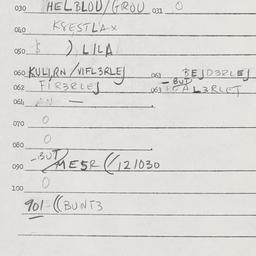 030 HELBLOU/GROU 031 O
040 KRESTLAX
050 ) LILA
060 KULIRN/VIFL3RLEJ 061 BEJD3RLEJ
062 FIR3RLEJ 063 -BUT AL3RLET
064 —
070 O
080 O
-BUT
090 MESR (/121030
100 O
901-((BUNT3